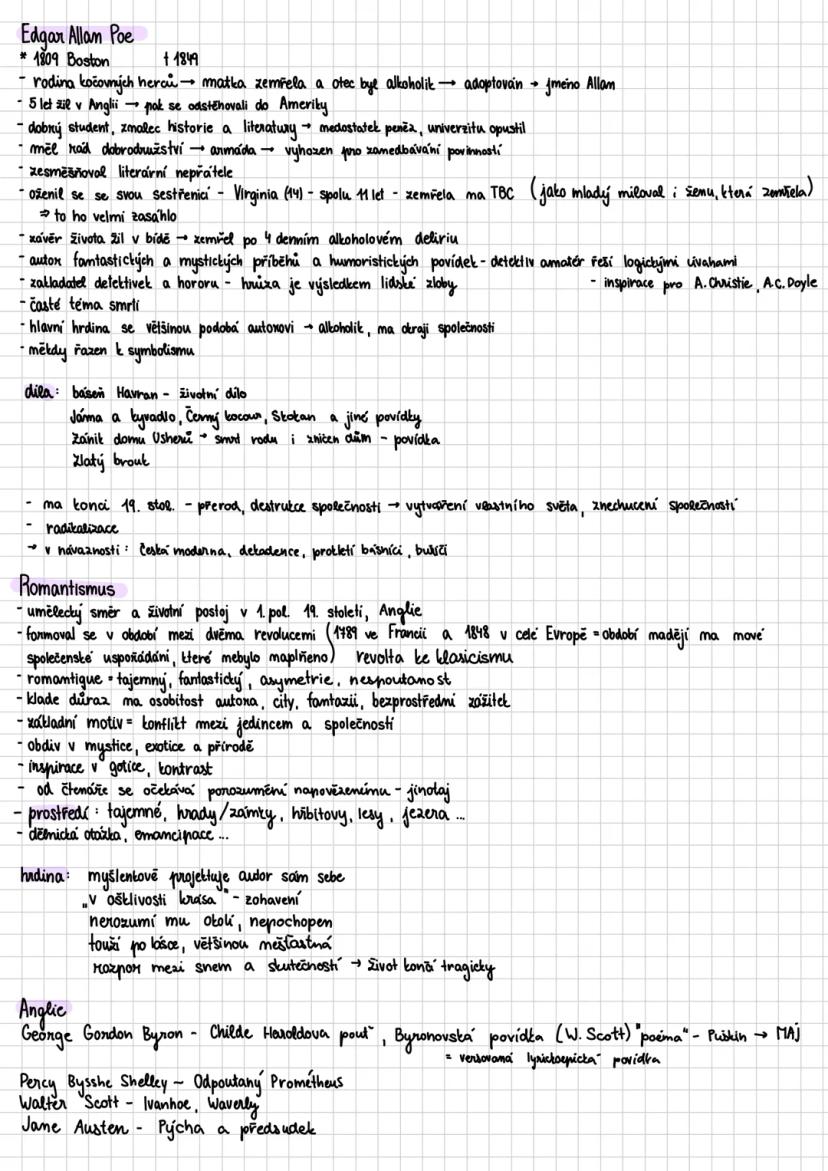 Edgar Allan Poe
* 1809 Boston † 1849
- rodina kočovných herců → matka zemřela a otec byl alkoholik → adoptován → jméno Allan
- 5 let žil v Anglii → pak se odstěhovali do Ameriky
- dobrý student, znalec historie a literatury → nedostatek peněz, univerzitu opustil
- měl rád dobrodružství → armáda → vyhozen pro zanedbávání povinností
- zesměšňoval literární nepřátele
- oženil se se svou sestřenicí - Virginia (14) - spolu 11 let - zemřela na TBC (jako mladý miloval i ženu, která zemřela)
⇒ to ho velmi zasáhlo
- závěr života žil v bídě → zemřel po 4 denním alkoholovém deliriu
- autor fantastických a mystických příběhů a humoristických povídek - detektiv amatér řeší logickými úvahami
- zakladatel detektivek a hororu - hrůza je výsledkem lidské zloby - inspirace pro A. Christie, A.C. Doyle
- časté téma smrti
- hlavní hrdina se většinou podobá autorovi → alkoholik, na okraji společnosti
- někdy řazen k symbolismu
díla: báseň Havran - životní dílo
Jáma a kyvadlo, Černý kocour, Skokan a jiné povídky
Zánik domu Usherů → smrt rodu i zničen dům - povídka
Zlatý brouk
- na konci 19. stol. - přerod, destrukce společnosti → vytvoření vlastního světa, znechucení společností
- radikalizace
→ v návaznosti: Česká moderna, dekadence, prokletí básníci, buřiči
Romantismus
- umělecký směr a životní postoj v 1. pol. 19. století, Anglie
- formoval se v období mezi dvěma revolucemi (1789 ve Francii a 1848 v celé Evropě = období nadějí na nové
společenské uspořádání, které nebylo naplněno) revolta ke klasicismu
- romantique = tajemný, fantastický, asymetrie, nespoutanost
- klade důraz na osobitost autora, city, fantazii, bezprostřední zážitek
- základní motiv = konflikt mezi jedincem a společností
- obdiv v mystice, exotice a přírodě
- inspirace v gotice, kontrast
- od čtenáře se očekává porozumění napovězenému - jinotaj
- prostředí: tajemné, hrady/zámky, hřbitovy, lesy, jezera ...
- dělnická otázka, emancipace ...
hrdina: myšlenkově projektuje autor sám sebe
„v ošklivosti krása" - zohavení
nerozumí mu okolí, nepochopen
touží po lásce, většinou nešťastná
rozpor mezi snem a skutečností → život končí tragicky
Anglie
George Gordon Byron - Childe Haroldova pouť, Byronovská povídka (W. Scott) "poéma" - Puškin → MÁJ
= veršovaná lyrickoepická povídka
Percy Bysshe Shelley - Odpoutaný Prométheus
Walter Scott - Ivanhoe, Waverly
Jane Austen - Pýcha a předsudek